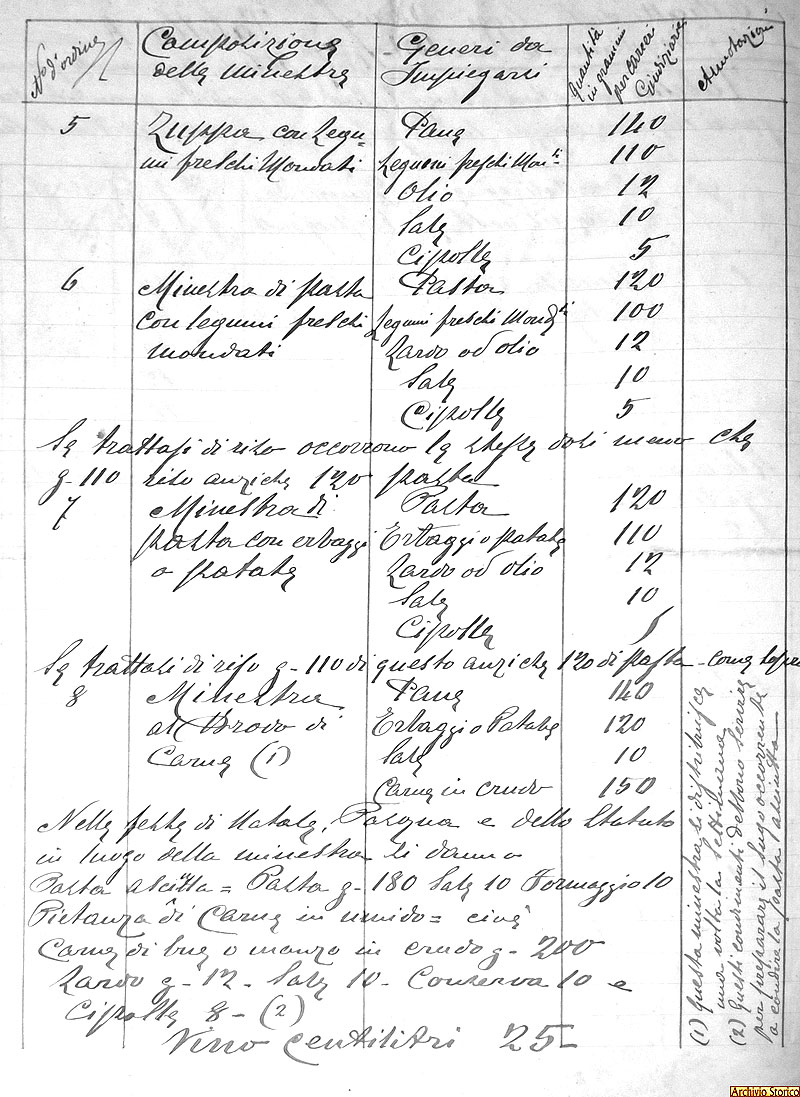 N° d'ordine
Composizione
della Minestra
Generi da
Impiegarsi
Quantità
in grammi
per carceri
Giudiziarie
Annotazioni
5 Zuppa con legu- Pane 140
mi freschi Mondati Legumi freschi Mon.ti 110
Olio 12
Sale 10
Cipolle 5
6 Minestra di pasta Pasta 120
con legumi freschi Legumi freschi Mond.ti 100
mondati Lardo od olio 12
Sale 10
Cipolle 5
Se trattasi di riso occorrono le stesse dosi meno che
g - 110 riso anziche 120 pasta
7 Minestra di Pasta 120
pasta con erbaggi Erbaggi o patate 110
o patate Lardo od olio 12
Sale 10
Cipolle 5
Se trattasi di riso g - 110 di questo anziche 120 di pasta - come sopra
8 Minestra Pane 140
al Brodo di Erbaggi o Patate 120
Carne (1) Sale 10
Carne in crudo 150
Nelle feste di Natale, Pasqua e dello Statuto
in luogo della minestra si danno
Pasta asciutta = Pasta g - 180 Sale 10 Formaggio 10
Pietanza di Carne in umido = cioè
Carne di bue o manzo in crudo g - 200
Lardo g - 12 - Sale 10 - Conserva 10 e
Cipolle 8 - (2)
Vino Centilitri 25 -
(1) Questa minestra si distribuisce
una volta la settimana
(2) Questi condimenti debbono servire
per preparare il sugo occorrente
a condire la pasta asciutta
Archivio Storico